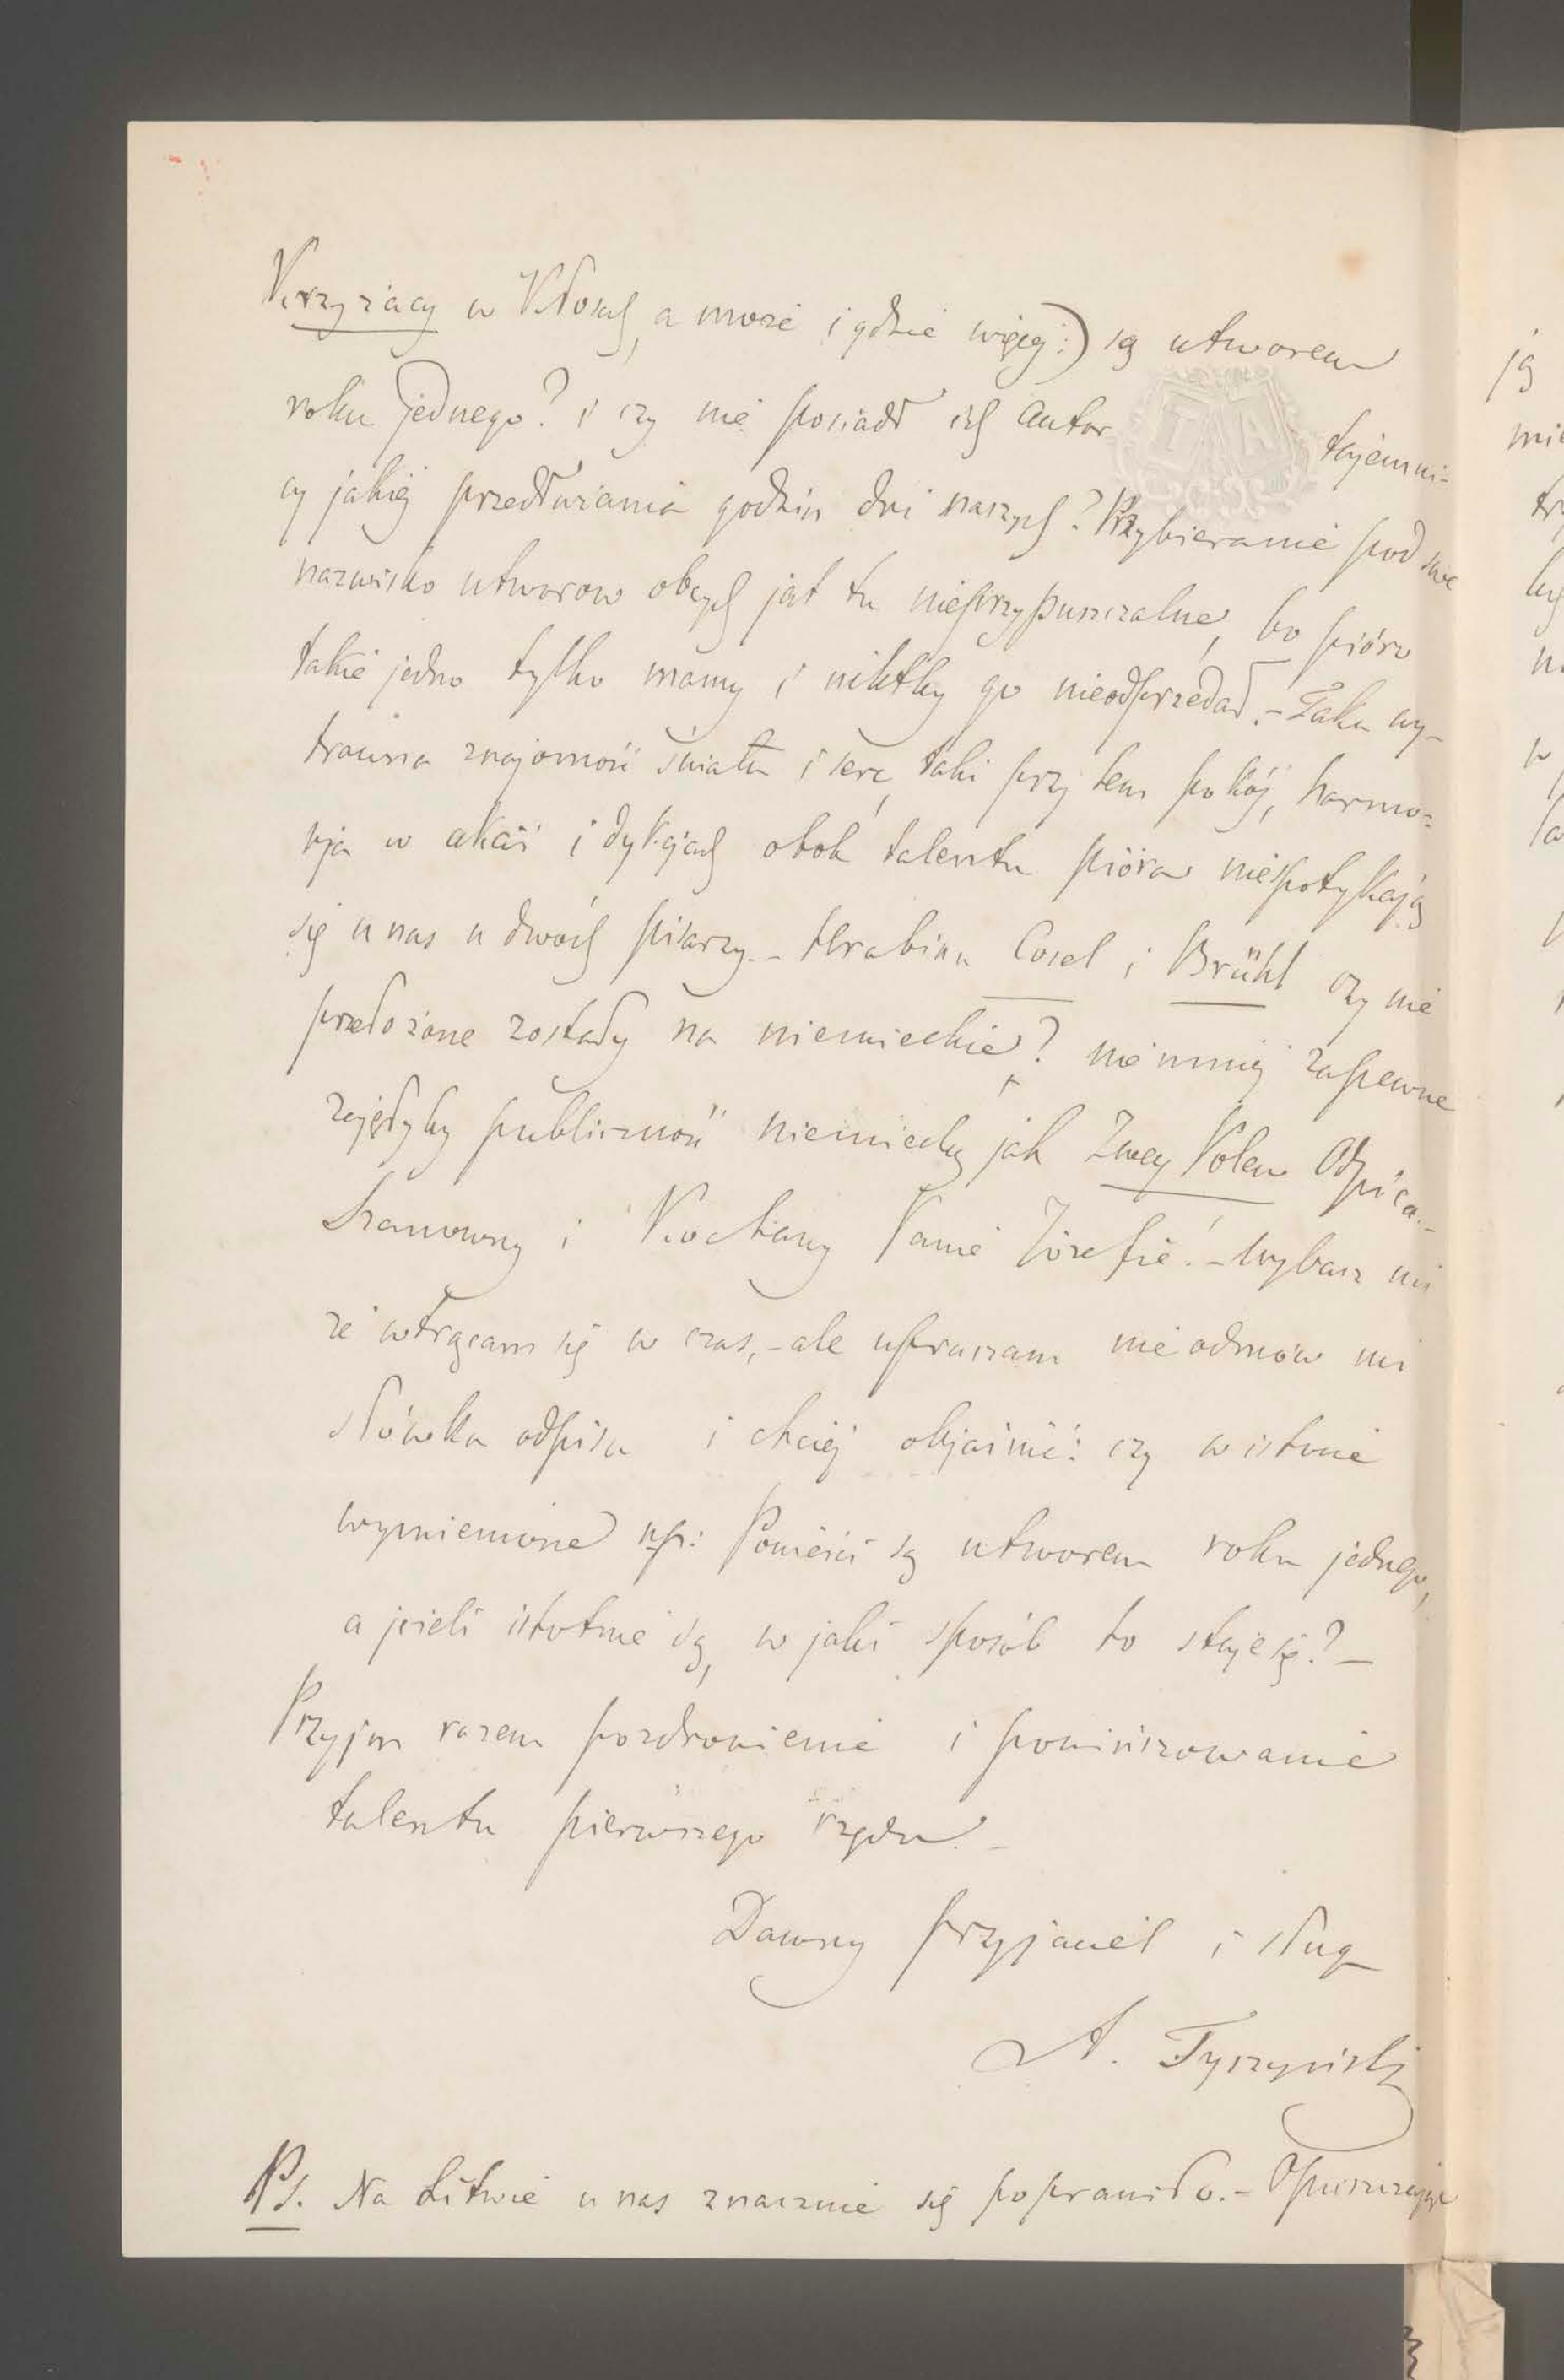 Krzyżacy w Kłosach, a może i gdzie więcej:) są utworem
roku jednego? i czy nie posiadł ich autor tajemni-
cy jakiéj przedłużania godzin dni naszych? Przybieranie pod swe
nazwisko utworow obcych jest tu nieprzypuszczalne, bo pióro
takie jedno tylko mamy i niktby go nieodprzedał. – Taka wy-
trawna znajomość świata i serc, taki przy tem pokój, harmo-
nja w akcji i dykcjach obok talentu pióra niespotykają
się u nas u dwóch pisarzy. – Hrabina Cosel i Brühl czy nie
przełożone zostały na niemieckie? nie mniéj zapewne
zajęłyby publiczność niemiecką jak Zwey Polen
Szanowny i Kochany Panie Józefie! – Wybacz mi
że wtrącam się w czas, – ale upraszam nie odmów mi
słówka odpisu i chciéj objaśnić: czy w istocie
wymienione np: Powieści są utworem roku jednego,
a jeżeli istotnie są, w jaki sposób to staje się? –
Przyjm razem pozdrowienie i powinszowanie
talentu pierwszego rzędu –
Dawny przyjaciel i sługa
A. Tyszyński
PS. Na Litwie u nas znacznie się poprawiło. –
ją